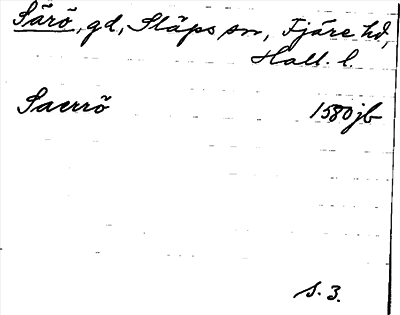 Särö, gd, Släps sn, Fjäre hd,
Hall. l.
Saerrö 1580 jb
s. 3.